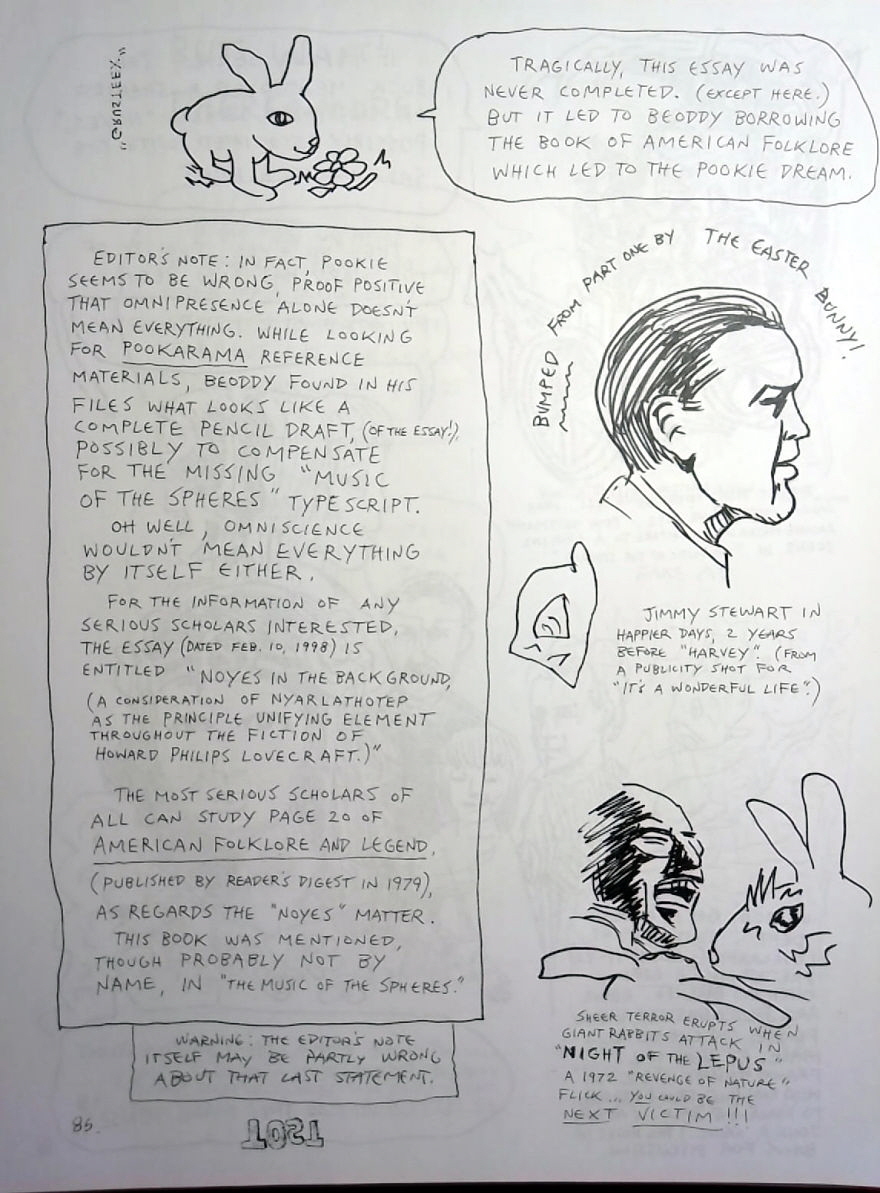 "GRUZTEEX"
TRAGICALLY, THIS ESSAY WAS
NEVER COMPLETED. (EXCEPT HERE.)
BUT IT LED TO BEODDY BORROWING
THE BOOK OF AMERICAN FOLKLORE
WHICH LED TO THE POOKIE DREAM.
EDITOR'S NOTE: IN FACT, POOKIE
SEEMS TO BE WRONG, PROOF POSITIVE
THAT OMNIPRESENCE ALONE DOESN'T
MEAN EVERYTHING. WHILE LOOKING
FOR POOKARAMA REFERENCE
MATERIALS, BEODDY FOUND IN HIS
FILES WHAT LOOKS LIKE A
COMPLETE PENCIL DRAFT, (OF THE ESSAY!),
POSSIBLY TO COMPENSATE
FOR THE MISSING "MUSIC
OF THE SPHERES" TYPESCRIPT.
OH WELL, OMNISCIENCE
WOULDN'T MEAN EVERYTHING
BY ITSELF EITHER.
FOR THE INFORMATION OF ANY
SERIOUS SCHOLARS INTERESTED,
THE ESSAY (DATED FEB. 10, 1998) IS
ENTITLED "NOYES IN THE BACKGROUND,
(A CONSIDERATION OF NYARLATHOTEP
AS THE PRINCIPLE UNIFYING ELEMENT
THROUGHOUT THE FICTION OF
HOWARD PHILIPS LOVECRAFT.)"
THE MOST SERIOUS SCHOLARS OF
ALL CAN STUDY PAGE 20 OF
AMERICAN FOLKLORE AND LEGEND,
(PUBLISHED BY READER'S DIGEST IN 1979),
AS REGARDS THE "NOYES" MATTER.
THIS BOOK WAS MENTIONED,
THOUGH PROBABLY NOT BY
NAME, IN "THE MUSIC OF THE SPHERES."
WARNING: THE EDITOR'S NOTE
ITSELF MAY BE PARTLY WRONG
ABOUT THAT LAST STATEMENT.
BUMPED FROM PART ONE BY THE EASTER BUNNY!
JIMMY STEWART IN
HAPPIER DAYS, 2 YEARS
BEFORE "HARVEY". (FROM
A PUBLICITY SHOT FOR
"IT'S A WONDERFUL LIFE".)
SHEER TERROR ERUPTS WHEN
GIANT RABBITS ATTACK IN
"NIGHT OF THE LEPUS"
A 1972 "REVENGE OF NATURE"
FLICK... YOU COULD BE THE
NEXT VICTIM!!!
85.
LOST